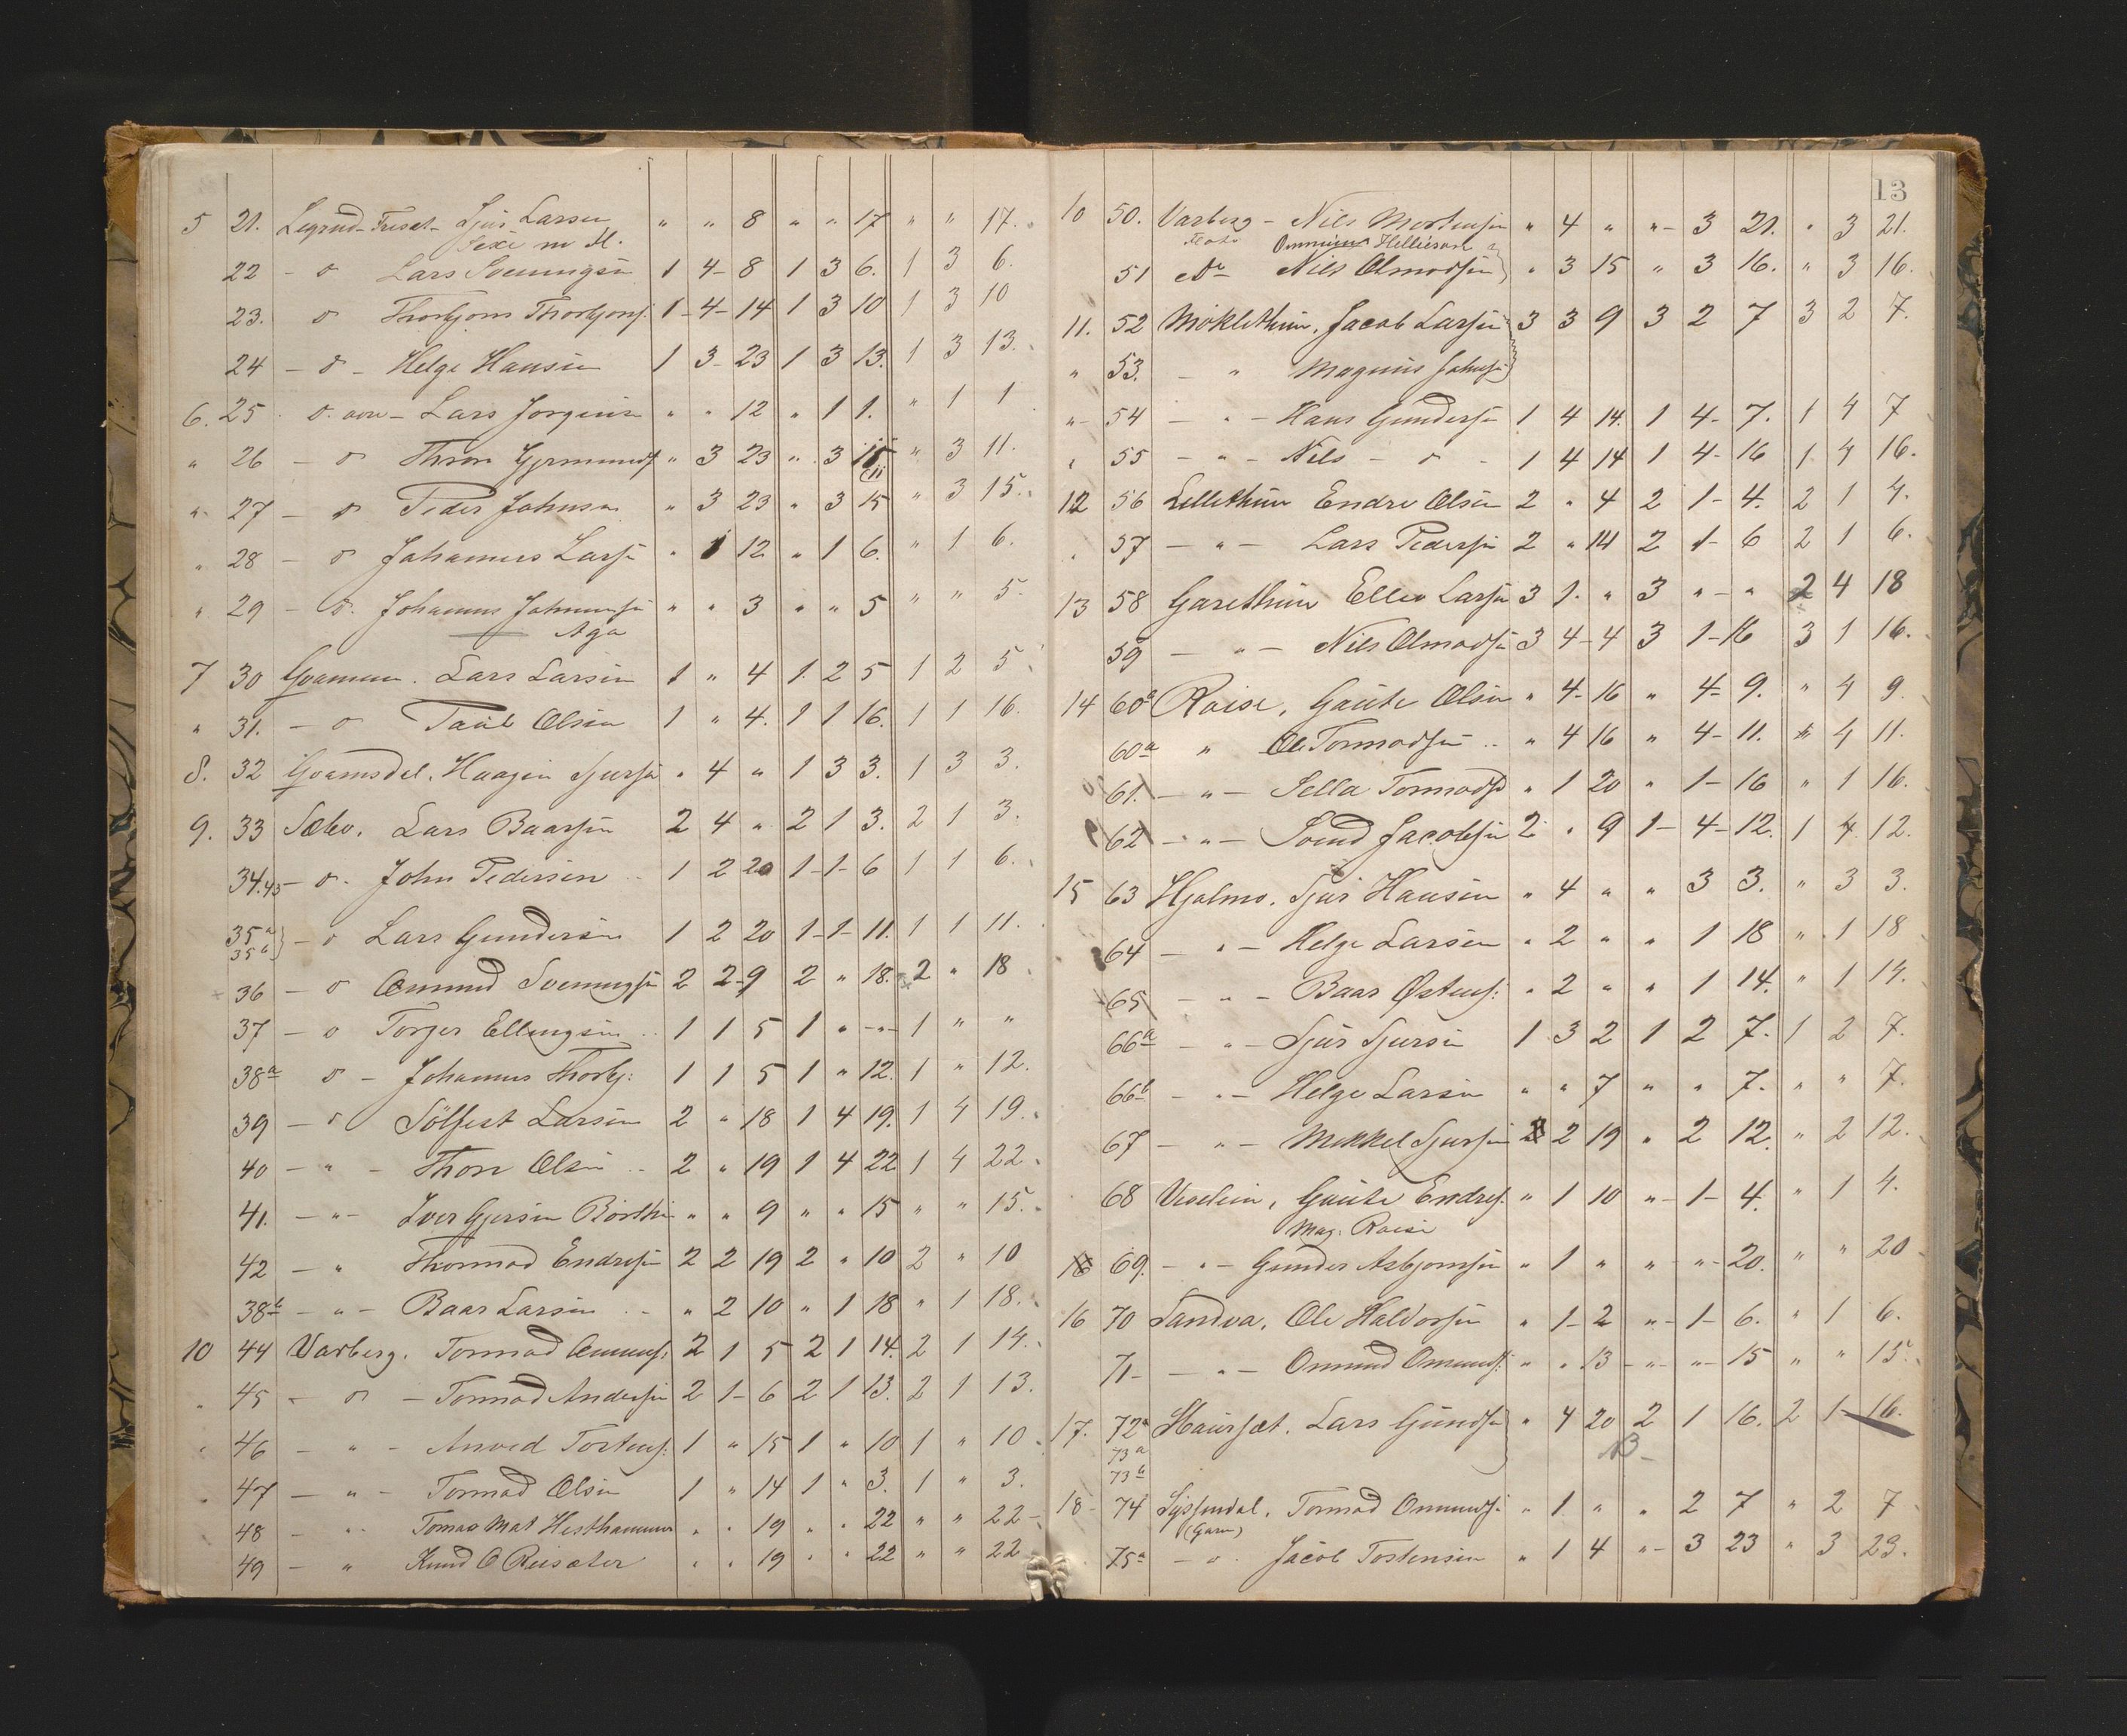 5 21. Legrud-Treset- Sjur Larsen " " 8 " " 17 " " 17.
Sexe m M.
22 - o Lars Soenungsen 1 4 - 8 1 3 6. 1 3 6.
23. o Thorbjorn Thorbjons. 1 - 4 - 14 1 3 10 1 3 10
24 - o - Helge Hansen 1 3 - 23 1 3 13. 1 3 13.
6. 25 o. - Lars Jorgensen " " 12 " 1 1. " 1 1
" 26 - o Thron Gjermunds " 3 23 " 3 11 " 3 11.
" 27 - o Peder Johnsen " 3 23 " 3 15 " 3 15.
" 28 - o Johannes Larss " 1 12 " 1 6. " 1 6.
" 29 - o. Johannes Johannessen " " 3 " " 5 " " 5.
Aga
7 30 Hvammen. Lars Larsen 1 " 4 1. 2 5 1 2 5
" 31. - o Paul Olsen 1 " 4. 1 1 16. 1 1 16.
8. 32 Hvamsdel. Haagen Sjursen " 4 " 1 3 3. 1 3 3.
9. 33 Sæbo. Lars Baarsen 2 4 " 2 1 3. 2 1 3.
34.43 - o. John Pedersen 1 2 20 1 - 1 - 6 1 1 6.
35a 35b } - o Lars Gundersen 1 2 20 1 - 1 - 11. 1 1 11.
36 - o Omund Svenungsen 2 2 - 9 2 " 18. 2 " 18
37 - o Torger Ellingsen 1 1 5 1 " - " - 1 " "
38a o - Johannes Thorbj: 1 1 5 1 " 12. 1 " 12.
39 - o Sölfest Larsen 2 " 18 1 4 19. 1 4 19.
40 - " - Thore Olsen 2 " 19 1 4 22 1 4 22.
41. - " - Iver Gjersen Börsthei " " 9 " " 15 " " 15.
42 - " Thormod Endresen 2 2 19 2 " 10 2 " 10
38b - " - Baar Larsen " 2 10 " 1 18 " 1 18.
10 44 Varberg. Tormod Omuns: 2 1 5 2 1 14. 2 1 14.
" 45 - o - Tormod Andersen 2 1 - 6 2 1 13. 2 1 13.
" 46 - " - Amved Tostens: 1 " 15 1 " 10 1 " 10
" 47 - " - Tormod Olsen 1 " 14 1 " 3. 1 " 3.
48 - " Tomas Mat Hesthammer " " 19 " " 22 " " 22 -
49 - " Knud O Reisæter " " 19 " " 22 " " 22
13
10 50. Varberg - Nils Mortensen " 4 " " - 3 21. " 3 21.
Helliesen
51 Do Nils Olmodsen " 3 15 " 3 16. " 3 16.
11. 52 Möklethun. Jacob Larsen 3 3 9 3 2 7 3 2 7.
" 53. - " Magnus Johns
" - 54 - " - Hans Gundersen 1 4 14. 1 4 - 7. 1 4 7
" 55 - " - Nils - o - 1 4 14 1 4 - 16 1 4 16.
12 56 Lillethun Endre Olsen 2 " 4 2 1 - 4. 2 1 4.
" 57 - " - Lars Pedersen 2 " 14 2 1 - 6 2 1 6.
13 58 Garethun Ellev Larsen 3 1. " 3 " - " 2 4 18
59 - " - Nils Olmodsen 3 4 - 4 3 1 - 16 3 1 16.
14 60a Raise, Gaute Olsen " 4 - 16 " 4 - 9. " 4 9.
60a " Ole Tormodsen " 4 16 " 4 - 11. " 4 11.
61. - " - Sella Tormodsd " 1 20 " 1 - 16 " 1 16.
62 - " - Svend Jacobsen 2 " 9 1 - 4 - 12. 1 4 12.
15 63 Hjolmo. Sjur Hansen " 4 " " 3 3. " 3 3.
64 - " - Helge Larsen " 2 " " 1 18 " 1 18
65 - " - Baar Østens: " 2 " " 1 14. " 1 14.
66a - " - Sjur Sjursen 1 3 2 1 2 7. 1 2 7.
66b - " - Helge Larsen " " 7 " " 7. " " 7.
67 - " - Mikkel Sjursen 2 19 " 2 12. " 2 12.
68 Veselien, Gaute Endres. " 1 10 " - 1 - 4. " 1 4.
Mag. Raise
16 69. - " - Gunder Asbjornsen " 1 " " " - 20. " " 20
16 70 Sandva. Ole Haldorsen " 1 - 2 " - 1 - 6. " 1 6.
71 - - " - Omund Omunds: " " 13 - " - " - 15 " " 15.
17. 72a Haursæt. Lars Gunds " 4 20 2 1 16. 2 1 - 16.
73a
73b NB -
18 - 74 Syssendal. Tormod Omunds " 1 " " 2 7 " 2 7
(Garen)
75a - o. Jacob Tostensen " 1 4 " - 3 23 " 3 23.